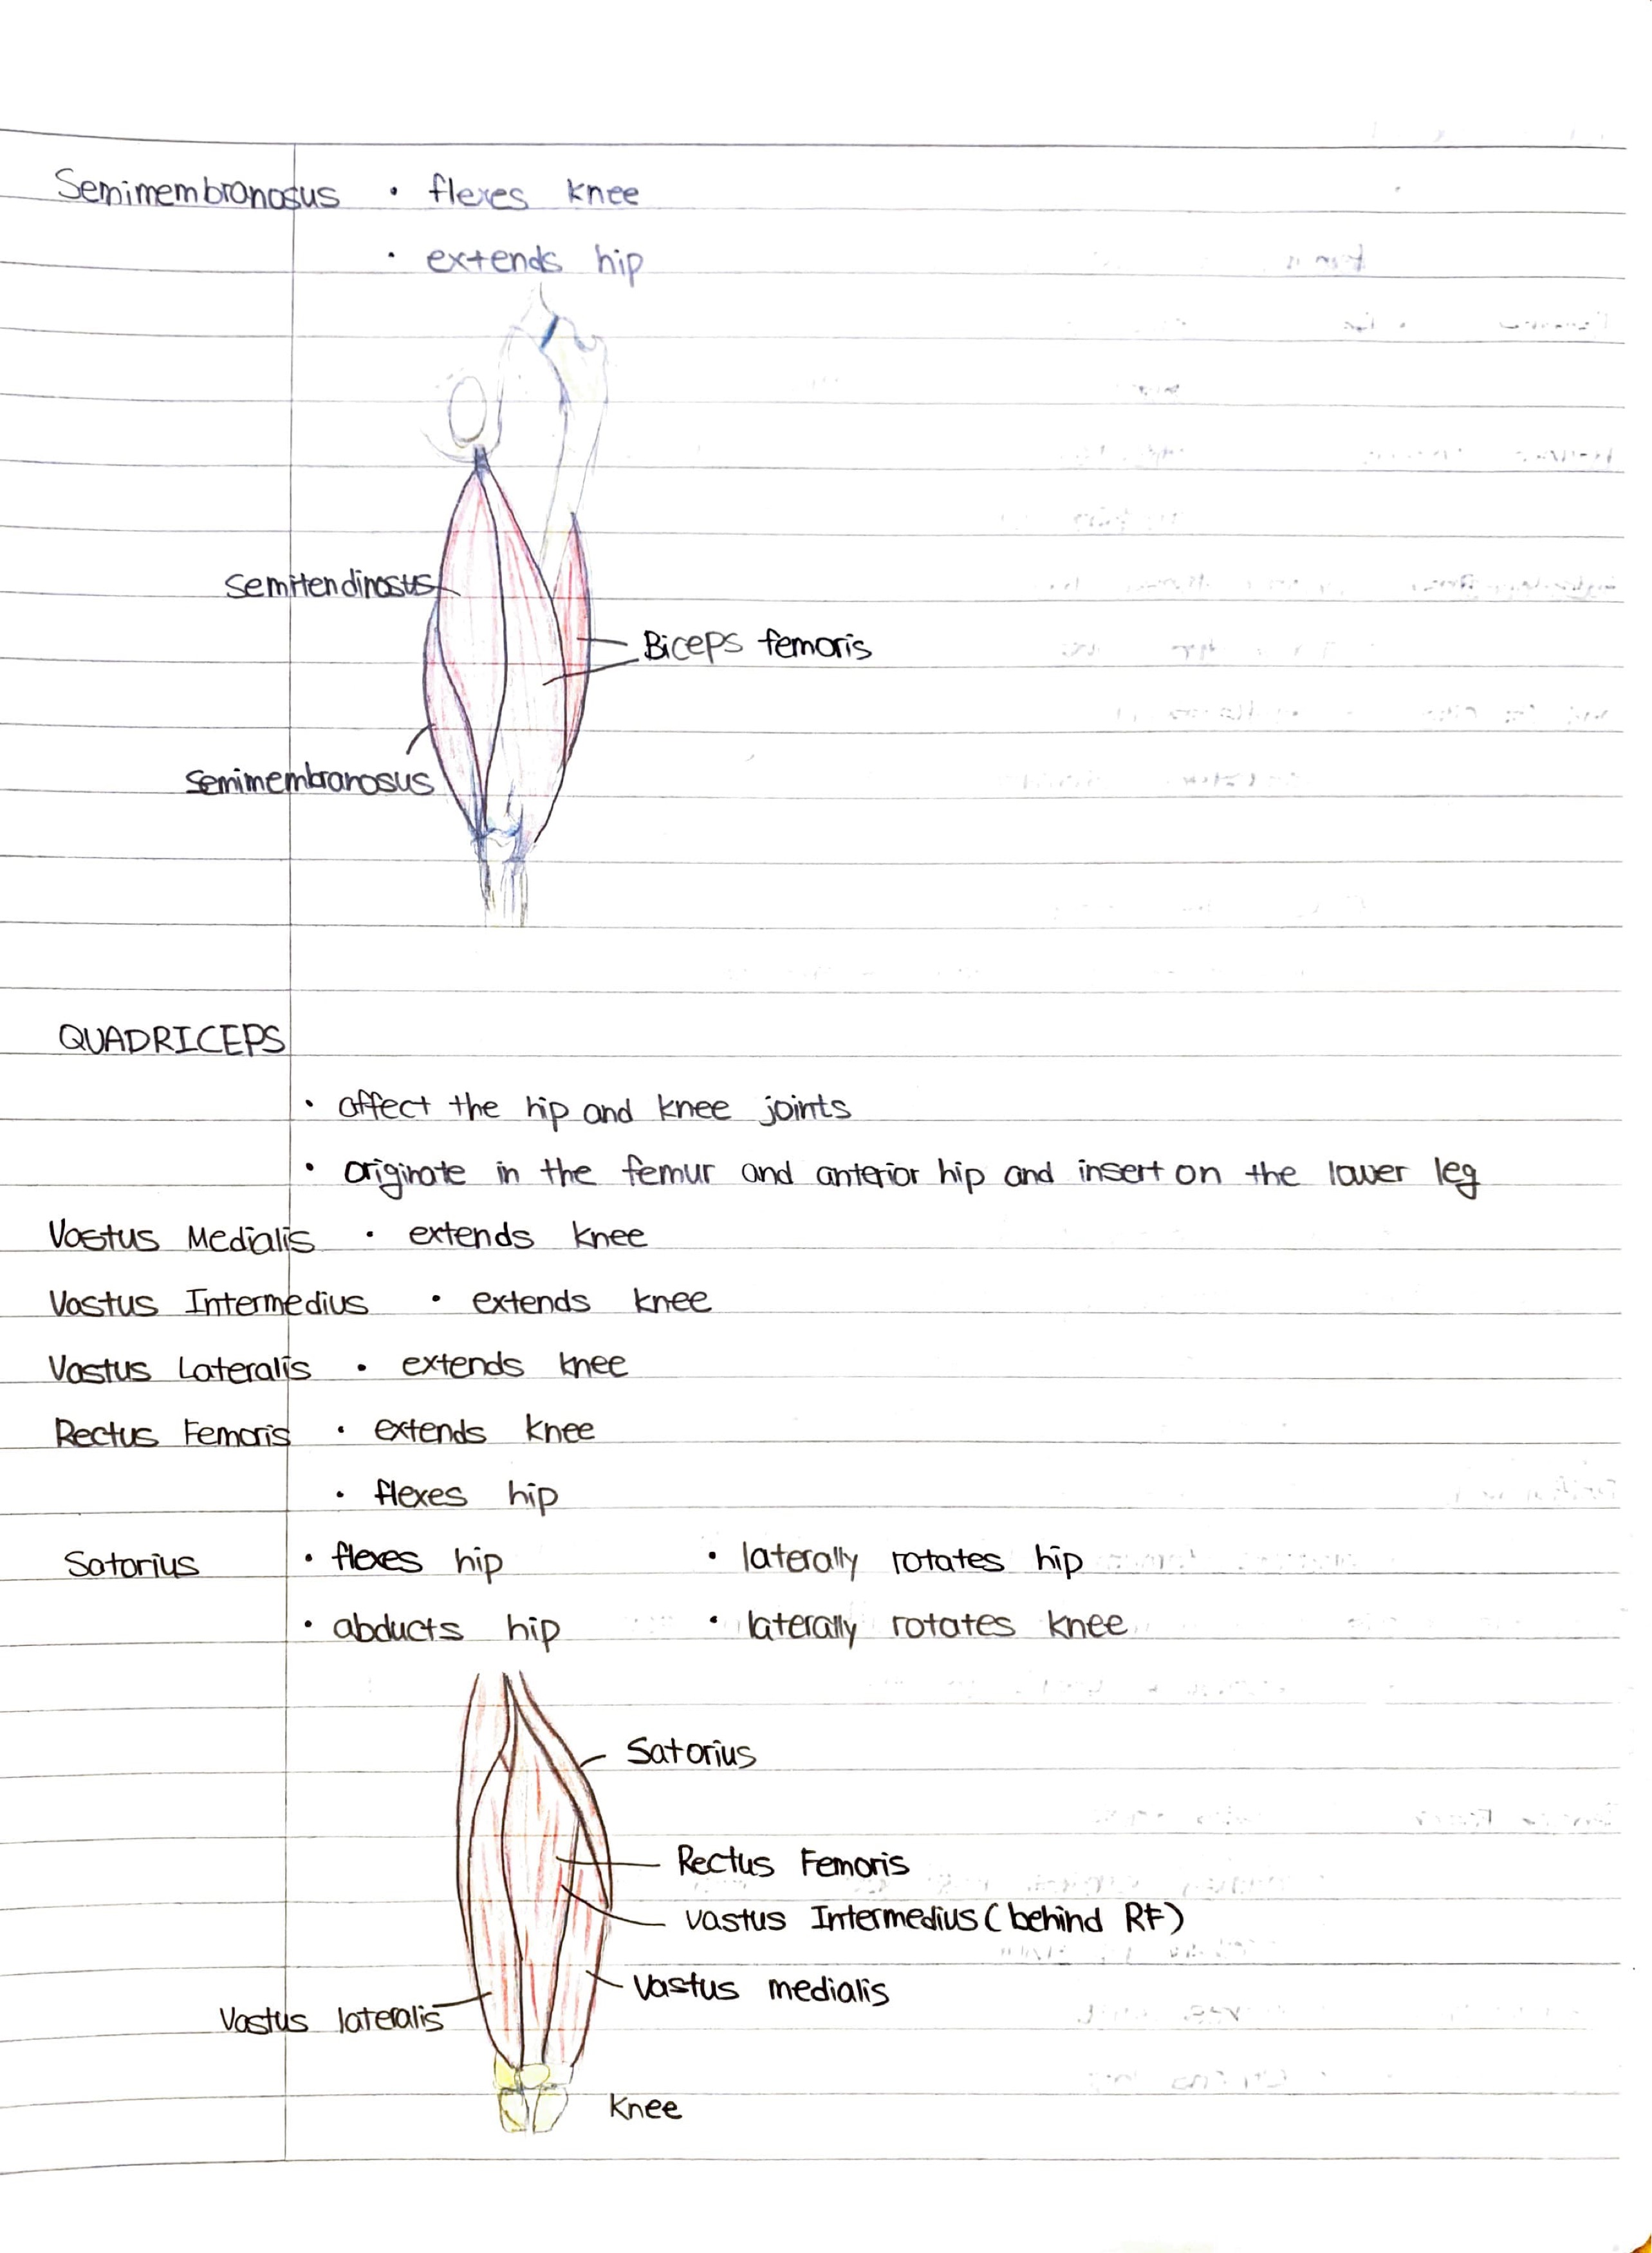 Semimembranosus • flexes knee
• extends hip
Semitendinosus
Biceps femoris
Semimembranosus
QUADRICEPS
• affect the hip and knee joints
• originate in the femur and anterior hip and insert on the lower leg
Vastus Medialis • extends knee
Vastus Intermedius • extends knee
Vastus Lateralis • extends knee
Rectus Femoris • extends knee
• flexes hip
Satorius • flexes hip • laterally rotates hip
• abducts hip • laterally rotates knee
Satorius
Rectus Femoris
Vastus Intermedius (behind RF)
Vastus medialis
Vastus lateralis
Knee